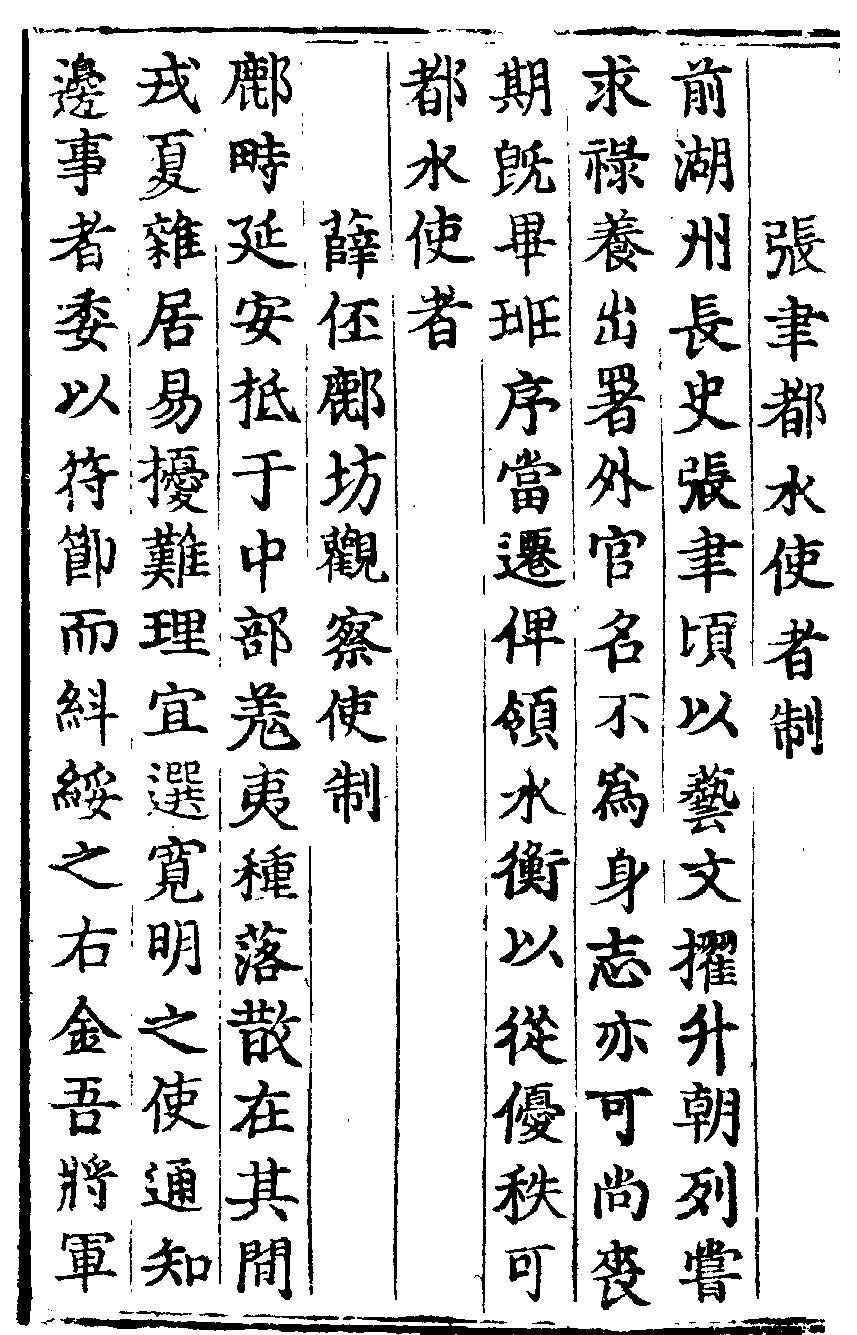 張聿都水使者制
前湖州長史張聿頃以藝文擢升朝列嘗
求祿養出署外官名不為身志亦可尚喪
期旣畢班序當遷俾領水衡以從優秩可
都水使者
薛伾鄜坊觀察使制
鄜畤延安抵于中部羌夷種落散在其間
戎夏雜居易擾難理宜選寬明之使通知
邊事者委以符節而糾綏之右金吾將軍